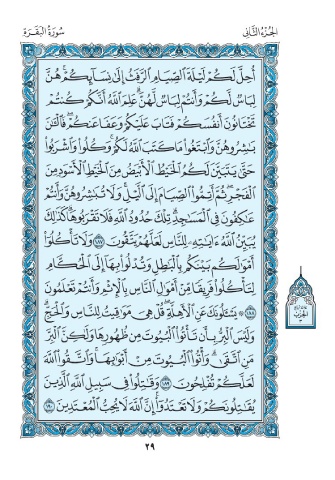 الجزء الثاني
سورة البقرة
أُحِلَّ لَكُمْ لَيْلَةَ الصِّيَامِ الرَّفَثُ إِلَىٰ نِسَآئِكُمْ هُنَّ
لِبَاسٌ لَّكُمْ وَأَنتُمْ لِبَاسٌ لَّهُنَّ عَلِمَ اللَّهُ أَنَّكُمْ كُنتُمْ
تَخْتَانُونَ أَنفُسَكُمْ فَتَابَ عَلَيْكُمْ وَعَفَا عَنكُمْ فَالْـَٰٔنَ
بَٰشِرُوهُنَّ وَابْتَغُوا۟ مَا كَتَبَ اللَّهُ لَكُمْ وَكُلُوا۟ وَاشْرَبُوا۟
حَتَّىٰ يَتَبَيَّنَ لَكُمُ الْخَيْطُ الْأَبْيَضُ مِنَ الْخَيْطِ الْأَسْوَدِ مِنَ
الْفَجْرِ ثُمَّ أَتِمُّوا۟ الصِّيَامَ إِلَى الَّيْلِ وَلَا تُبَٰشِرُوهُنَّ وَأَنتُمْ
عَٰكِفُونَ فِي الْمَسَٰجِدِ تِلْكَ حُدُودُ اللَّهِ فَلَا تَقْرَبُوهَا كَذَٰلِكَ
يُبَيِّنُ اللَّهُ ءَايَٰتِهِ لِلنَّاسِ لَعَلَّهُمْ يَتَّقُونَ ١٨٧ وَلَا تَأْكُلُوٓا۟
أَمْوَٰلَكُم بَيْنَكُم بِالْبَٰطِلِ وَتُدْلُوا۟ بِهَآ إِلَى الْحُكَّامِ
لِتَأْكُلُوا۟ فَرِيقًا مِّنْ أَمْوَٰلِ النَّاسِ بِالْإِثْمِ وَأَنتُمْ تَعْلَمُونَ
١٨٨ ۞ يَسْـَٔلُونَكَ عَنِ الْأَهِلَّةِ قُلْ هِيَ مَوَٰقِيتُ لِلنَّاسِ وَالْحَجِّ
وَلَيْسَ الْبِرُّ بِأَن تَأْتُوا۟ الْبُيُوتَ مِن ظُهُورِهَا وَلَٰكِنَّ الْبِرَّ
مَنِ اتَّقَىٰ وَأْتُوا۟ الْبُيُوتَ مِنْ أَبْوَٰبِهَا وَاتَّقُوا۟ اللَّهَ
لَعَلَّكُمْ تُفْلِحُونَ ١٨٩ وَقَٰتِلُوا۟ فِي سَبِيلِ اللَّهِ الَّذِينَ
يُقَٰتِلُونَكُمْ وَلَا تَعْتَدُوٓا۟ إِنَّ اللَّهَ لَا يُحِبُّ الْمُعْتَدِينَ ١٩٠
٢٩